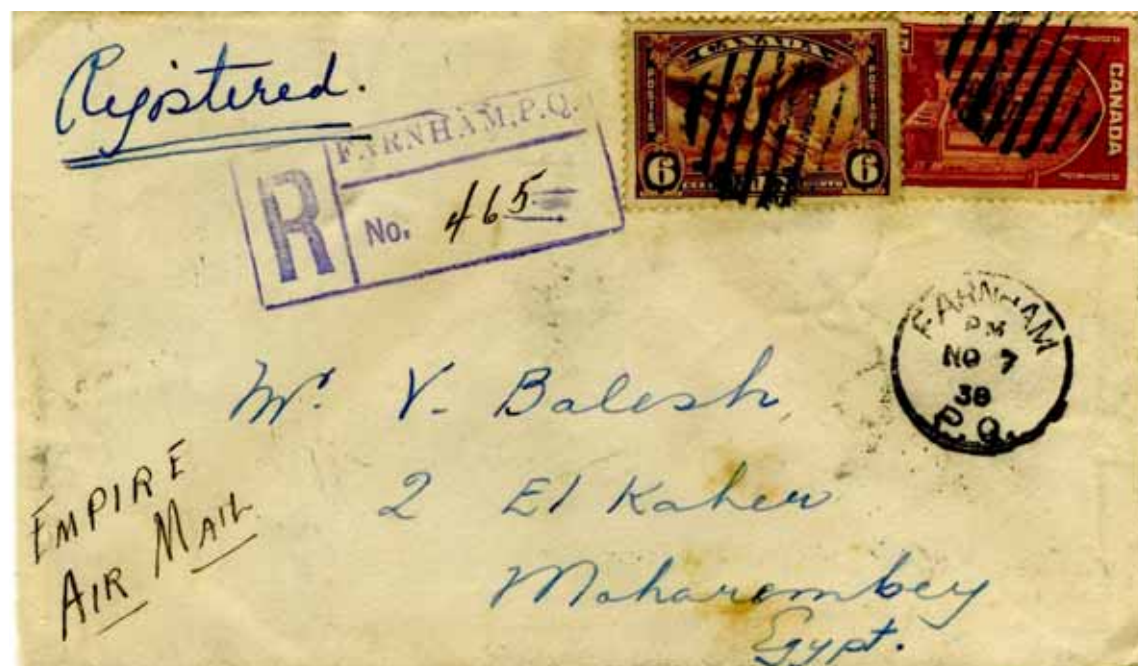 Registered.
FARNHAM, P.Q.
R
No. 465
CANADA
POSTES
POSTAGE
6
6
CANADA
FARNHAM
PM
NO 7
38
P.Q.
Mr. V. Balesh
2 El Kaher
Moharembey
Egypt.
EMPIRE
AIR MAIL